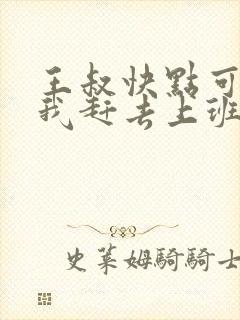 王叔快點可
我赶去上班
史萊姆騎騎士